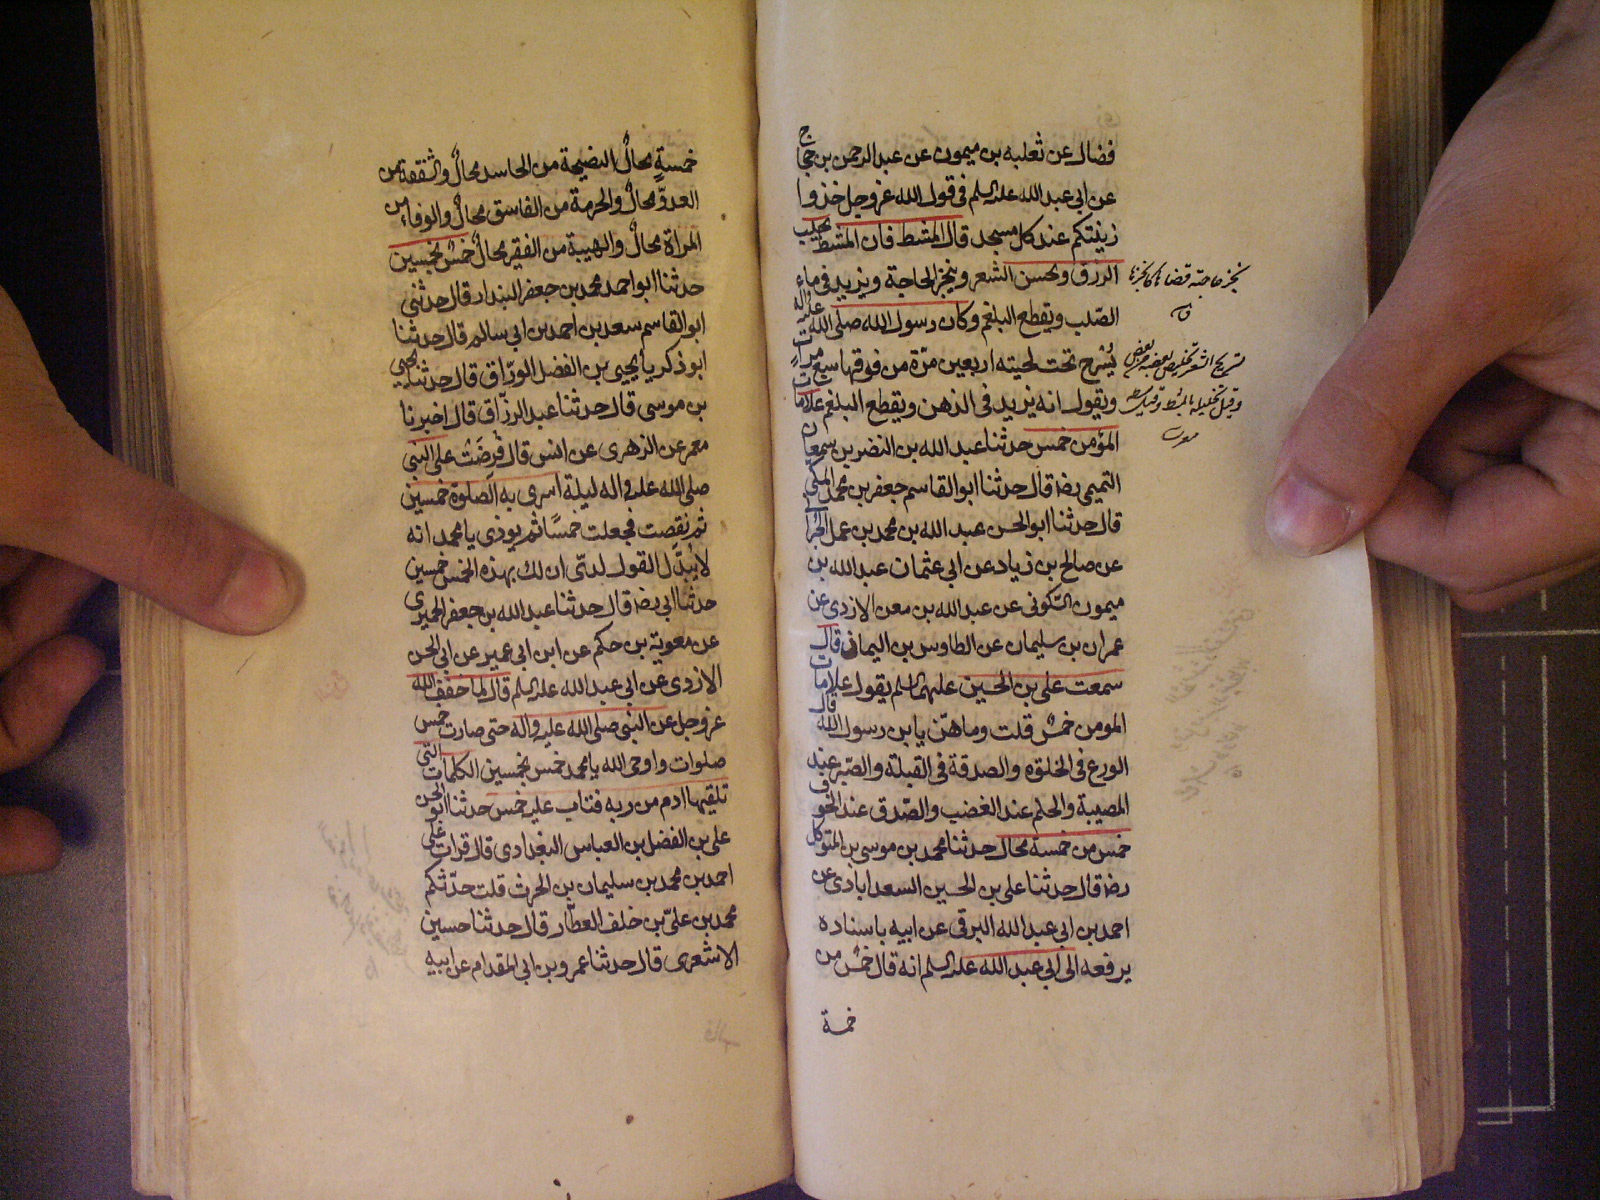 فضال عن ثعلبه بن ميمون عن عبد الرحمن بن حجاج
عن ابي عبد الله علیه السلم فی قول الله عز وجل خذوا
زينتكم عند كل مسجد قال المشط فان المشط يجلب
الرزق ويحسن الشعر وينجز الحاجة ويزيد في ماء
الصّلب ويقطع البلغم وكان رسول الله صلى الله عليه واله
يُسَرح تحت لحيته اربعين مرّة من فوقها سبع مراتٍ
ويقول انه يزيد في الذهن ويقطع البلغم علامات
المؤمن خمس حدثنا عبد الله بن النضر بن سمعان
التميمی رضه قال حدثنا ابو القاسم جعفر بن محمد المكي
قال حدثنا ابو الحسن عبد الله بن محمد بن عمل الحرا
عن صالح بن زياد عن ابي عثمان عبد الله بن
ميمون السّكونى عن عبد الله بن معن الازدى عن
عمران بن سليمان عن الطاوس بن اليمان قال
سمعت على بن الحسين علیهما السلم يقول علامات
المومن خمسٌ قلت وما هنّ يا بن رسول الله قال
الورع في الخلوه والصدقة في القبلة والصّبر عند
المصيبة والحلم عند الغضب والصّدق عند الخوف
خمس من خمسة محال حدثنا محمد بن موسى بن المتوكل
رضه قال حدثنا على بن الحسين السعدابادى عن
احمد بن ابى عبد الله البرقى عن ابيه باسناده
يرفعه الى ابي عبد الله علیه السلم انه قال خمسٌ من
خمسة
تسريح الشعر تخليص بعضه من بعض
خمسةٍ محالٌ النصيحة من الحاسد محالٌ والشفقة من
العدوّ محالٌ والحرمة من الفاسق محالٌ والوفاء من
المراة محالٌ والهيبة من الفقير محالٌ خمسٌ بخمسين
حدثنا ابو احمد محمد بن جعفر البندار قال حدثنى
ابو القاسم سعد بن احمد بن ابي سالم قال حدثنا
ابو ذكريا يحيى بن الفضل الورّاق قال حدثنا يحيى
بن موسى قال حدثنا عبد الرزّاق قال اخبرنا
معمر عن الزهرى عن انس قال فُرِضَتْ على النبى
صلى الله علیه واله ليلة اسرى به الصلوة خمسين
ثم نقصت فجعلت خمسًا ثم يوذى يا محمد انه
لا يُبَدّل القول لدىّ ان لك بهذه الخمس خمسين
حدثنا ابي رضه قال حدثنا عبد الله بن جعفر الحميرى
عن معوية بن حكم عن ابن ابى عمير عن ابى الحسن
الازدى عن ابي عبد الله علیه السلم قال لما خفف الله
عز وجل عن النبى صلى الله عليه واله حتى صارت خمس
صلوات واوحى الله يا محمد خمس بخمسين الكلمات التى
تلقيها ادم من ربه فتاب عليه خمس حدثنا ابو الحسن
على بن الفضل بن العباس البغدادى قال قرات على
احمد بن محمد بن سليمان بن الحرث قلت حدّثكم
محمد بن علىّ بن خلف العطّار قال حدثنا حسين
الاشعرى قال حدثنا عمرو بن ابى المقدام عن ابيه